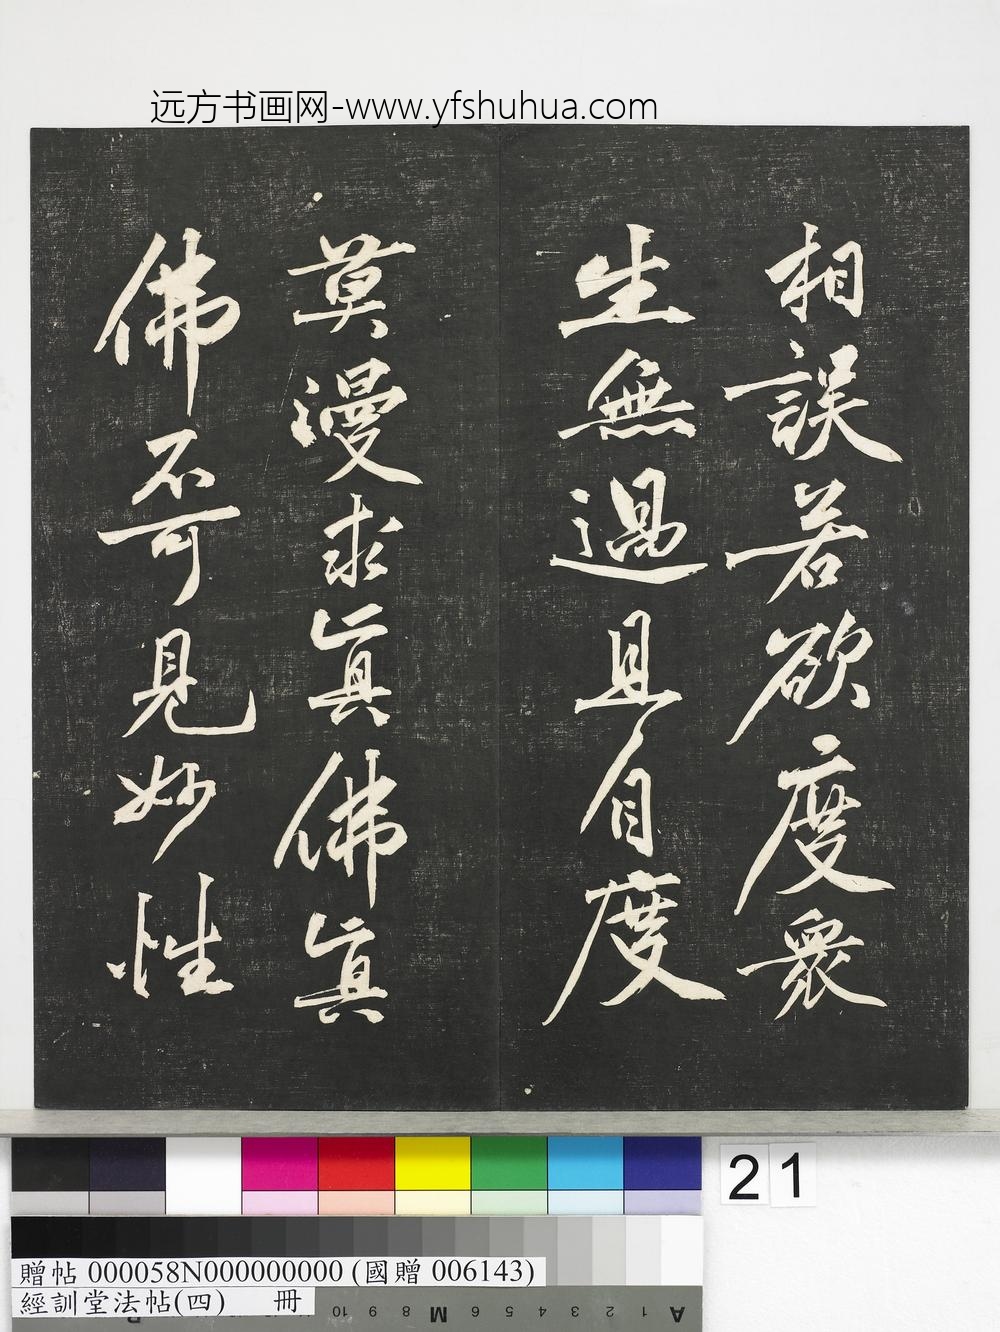 远方书画网-www.yfshuhua.com
相誤若欲度衆
生無過且自度
莫漫求真佛真
佛不可見妙性
21
贈帖 000058N000000000 (國贈 006143)
經訓堂法帖(四) 冊
10 9 8 M 6 5 4 3 2 1 A